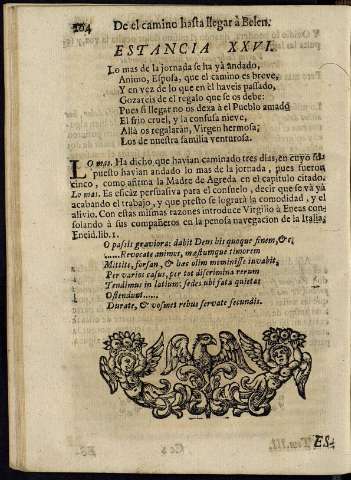 104 De el camino hasta llegar à Belen.
ESTANCIA XXVI.
Lo mas de la jornada se ha yà andado,
Animo, Esposa, que el camino es breve,
Y en vez de lo que en èl haveis passado,
Gozareis de el regalo que se os debe:
Pues si llegar no os dexa à el Pueblo amado
El frio cruel, y la confusa nieve,
Allà os regalaràn, Virgen hermosa;
Los de nuestra familia venturosa.
Lo mas. Ha dicho, que havian caminado tres dias, en cuyo
puesto havian andado lo mas de la jornada, pues fueron
cinco, como afirma la Madre de Agreda en el capitulo citado.
Lo mas. Es eficàz persuasiva para el consuelo, decir que se và yà
acabando el trabajo, y que presto se lograrà la comodidad, y el
alivio. Con estas mismas razones introduce Virgilio à Eneas con-
solando à sus compañeros en la penosa navegacion de la Italia,
Eneid. lib. 1.
O passis graviora: dabit Deus his quoque finem, &c.
......Revocate animos, mæstumque timorem
Mittite, forsan, & hæc olim meminisse iuvabit,
Per varios casus, per tot discrimina rerum
Tendimus in latium: sedes ubi fata quietas
Ostendunt......
Durate, & vosmet rebus servate secundis.
ES-